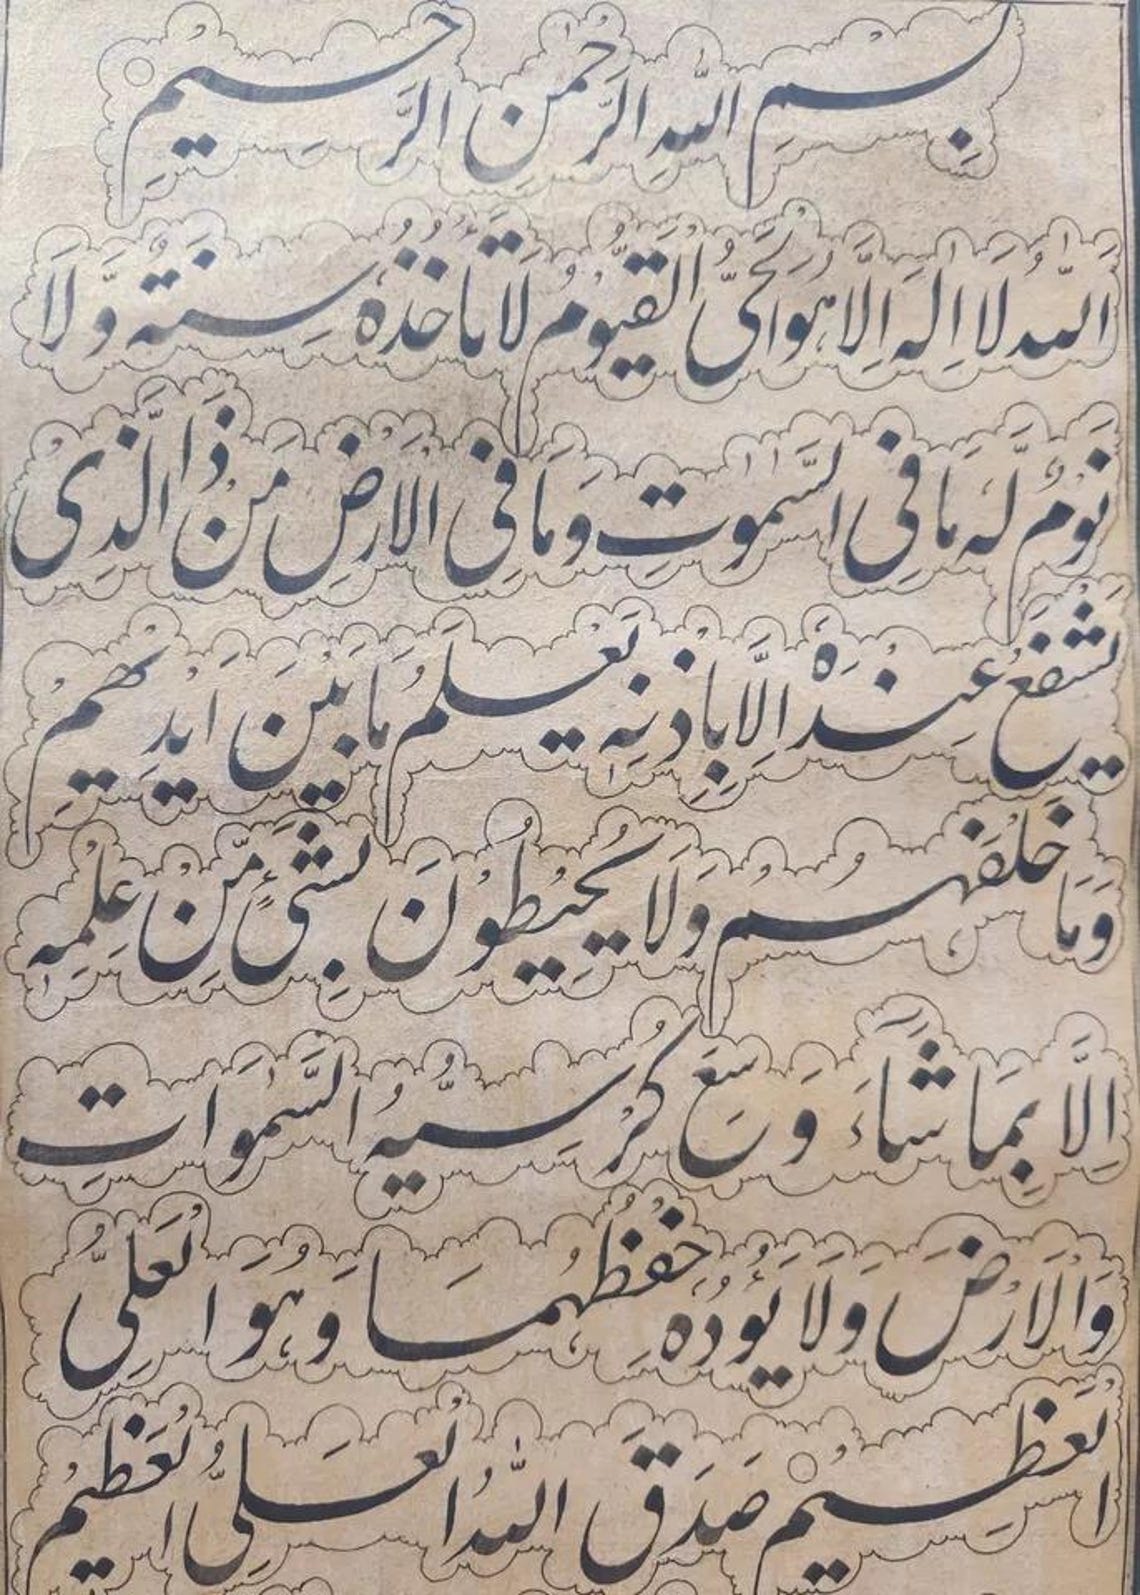 بِسْمِ اللّٰهِ الرَّحْمٰنِ الرَّحِيْمِ
اَللّٰهُ لَا اِلٰهَ اِلَّا هُوَ الْحَيُّ الْقَيُّوْمُ لَا تَأْخُذُهٗ سِنَةٌ وَّلَا
نَوْمٌ لَهٗ مَا فِي السَّمٰوٰتِ وَمَا فِي الْاَرْضِ مَنْ ذَا الَّذِيْ
يَشْفَعُ عِنْدَهٗ اِلَّا بِاِذْنِهٖ يَعْلَمُ مَا بَيْنَ اَيْدِيْهِمْ
وَمَا خَلْفَهُمْ وَلَا يُحِيْطُوْنَ بِشَيْءٍ مِّنْ عِلْمِهٖ
اِلَّا بِمَا شَاءَ وَسِعَ كُرْسِيُّهُ السَّمٰوَاتِ
وَالْاَرْضَ وَلَا يَؤُدُهٗ حِفْظُهُمَا وَهُوَ الْعَلِيُّ
الْعَظِيْمُ صَدَقَ اللّٰهُ الْعَلِيُّ الْعَظِيْمُ